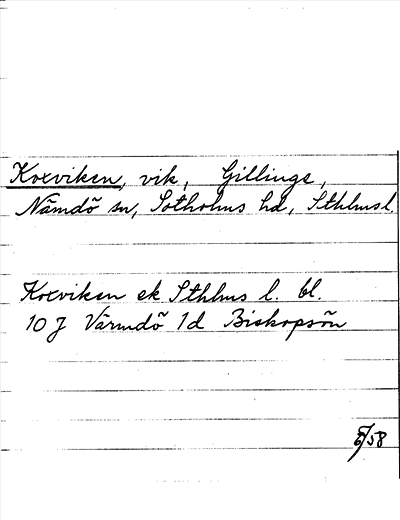 Korviken, vik, Gillinge,
Nämdö sn, Sotholms hd, Sthlmsl.
Korviken ek Sthlms l. bl.
10 J Värmdö 1d Biskopsön
6/58